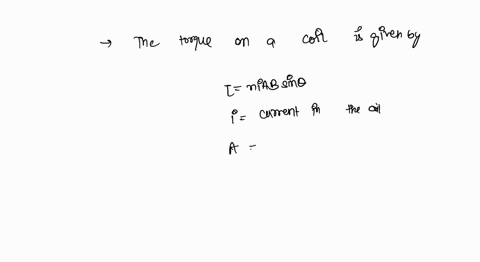 → The torque on a coil is given by
τ = niAB sinθ
i = current in the coil
A =